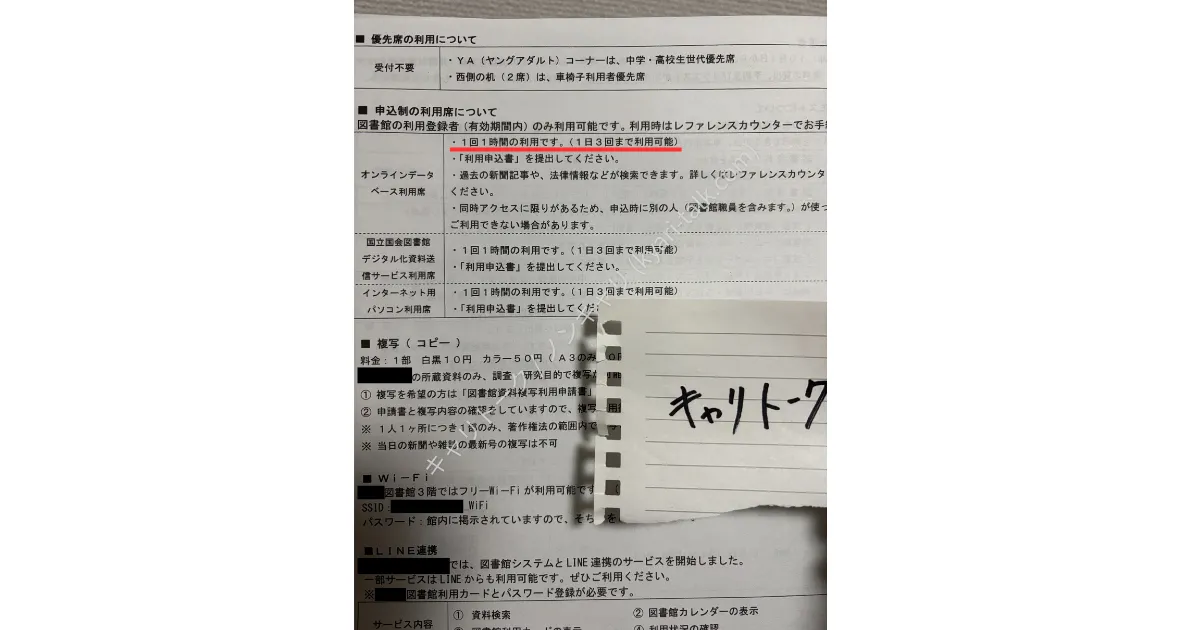 ■ 優先席の利用について
受付不要
・ＹＡ（ヤングアダルト）コーナーは、中学・高校生世代優先席
・西側の机（２席）は、車椅子利用者優先席
■ 申込制の利用席について
図書館の利用登録者（有効期間内）のみ利用可能です。利用時はレファレンスカウンターでお手続
オンラインデータ
ベース利用席
・１回１時間の利用です。（１日３回まで利用可能）
・「利用申込書」を提出してください。
・過去の新聞記事や、法律情報などが検索できます。詳しくはレファレンスカウンタ
ください。
・同時アクセスに限りがあるため、申込時に別の人（図書館職員を含みます。）が使っ
ご利用できない場合があります。
国立国会図書館
デジタル化資料送
信サービス利用席
・１回１時間の利用です。（１日３回まで利用可能）
・「利用申込書」を提出してください。
インターネット用
パソコン利用席
・１回１時間の利用です。（１日３回まで利用可能）
・「利用申込書」を提出してくださ
■ 複写（ コピー ）
料金：１部　白黒１０円　カラー５０円（Ａ３のみ
の所蔵資料のみ、調査・研究目的で複写が可能
① 複写を希望の方は「図書館資料複写利用申請書」
② 申請書と複写内容の確認をしていますので、複写
※ １人１ヶ所につき１部のみ、著作権法の範囲内で
※ 当日の新聞や雑誌の最新号の複写は不可
■ Ｗｉ－Ｆｉ
図書館３階ではフリーWi－Fiが利用可能です
SSID：
WiFi
パスワード：館内に掲示されていますので、そち
■ＬＩＮＥ連携
では、図書館システムとLINE連携のサービスを開始しました。
一部サービスはLINEからも利用可能です。ぜひご利用ください。
※
図書館利用カードとパスワード登録が必要です。
サービス内容
① 資料検索
② 図書館カレンダーの表示
④ 利用状況の確認
キャリトーク
キャリトーク/ノンキャリ(kyari-talk.com)